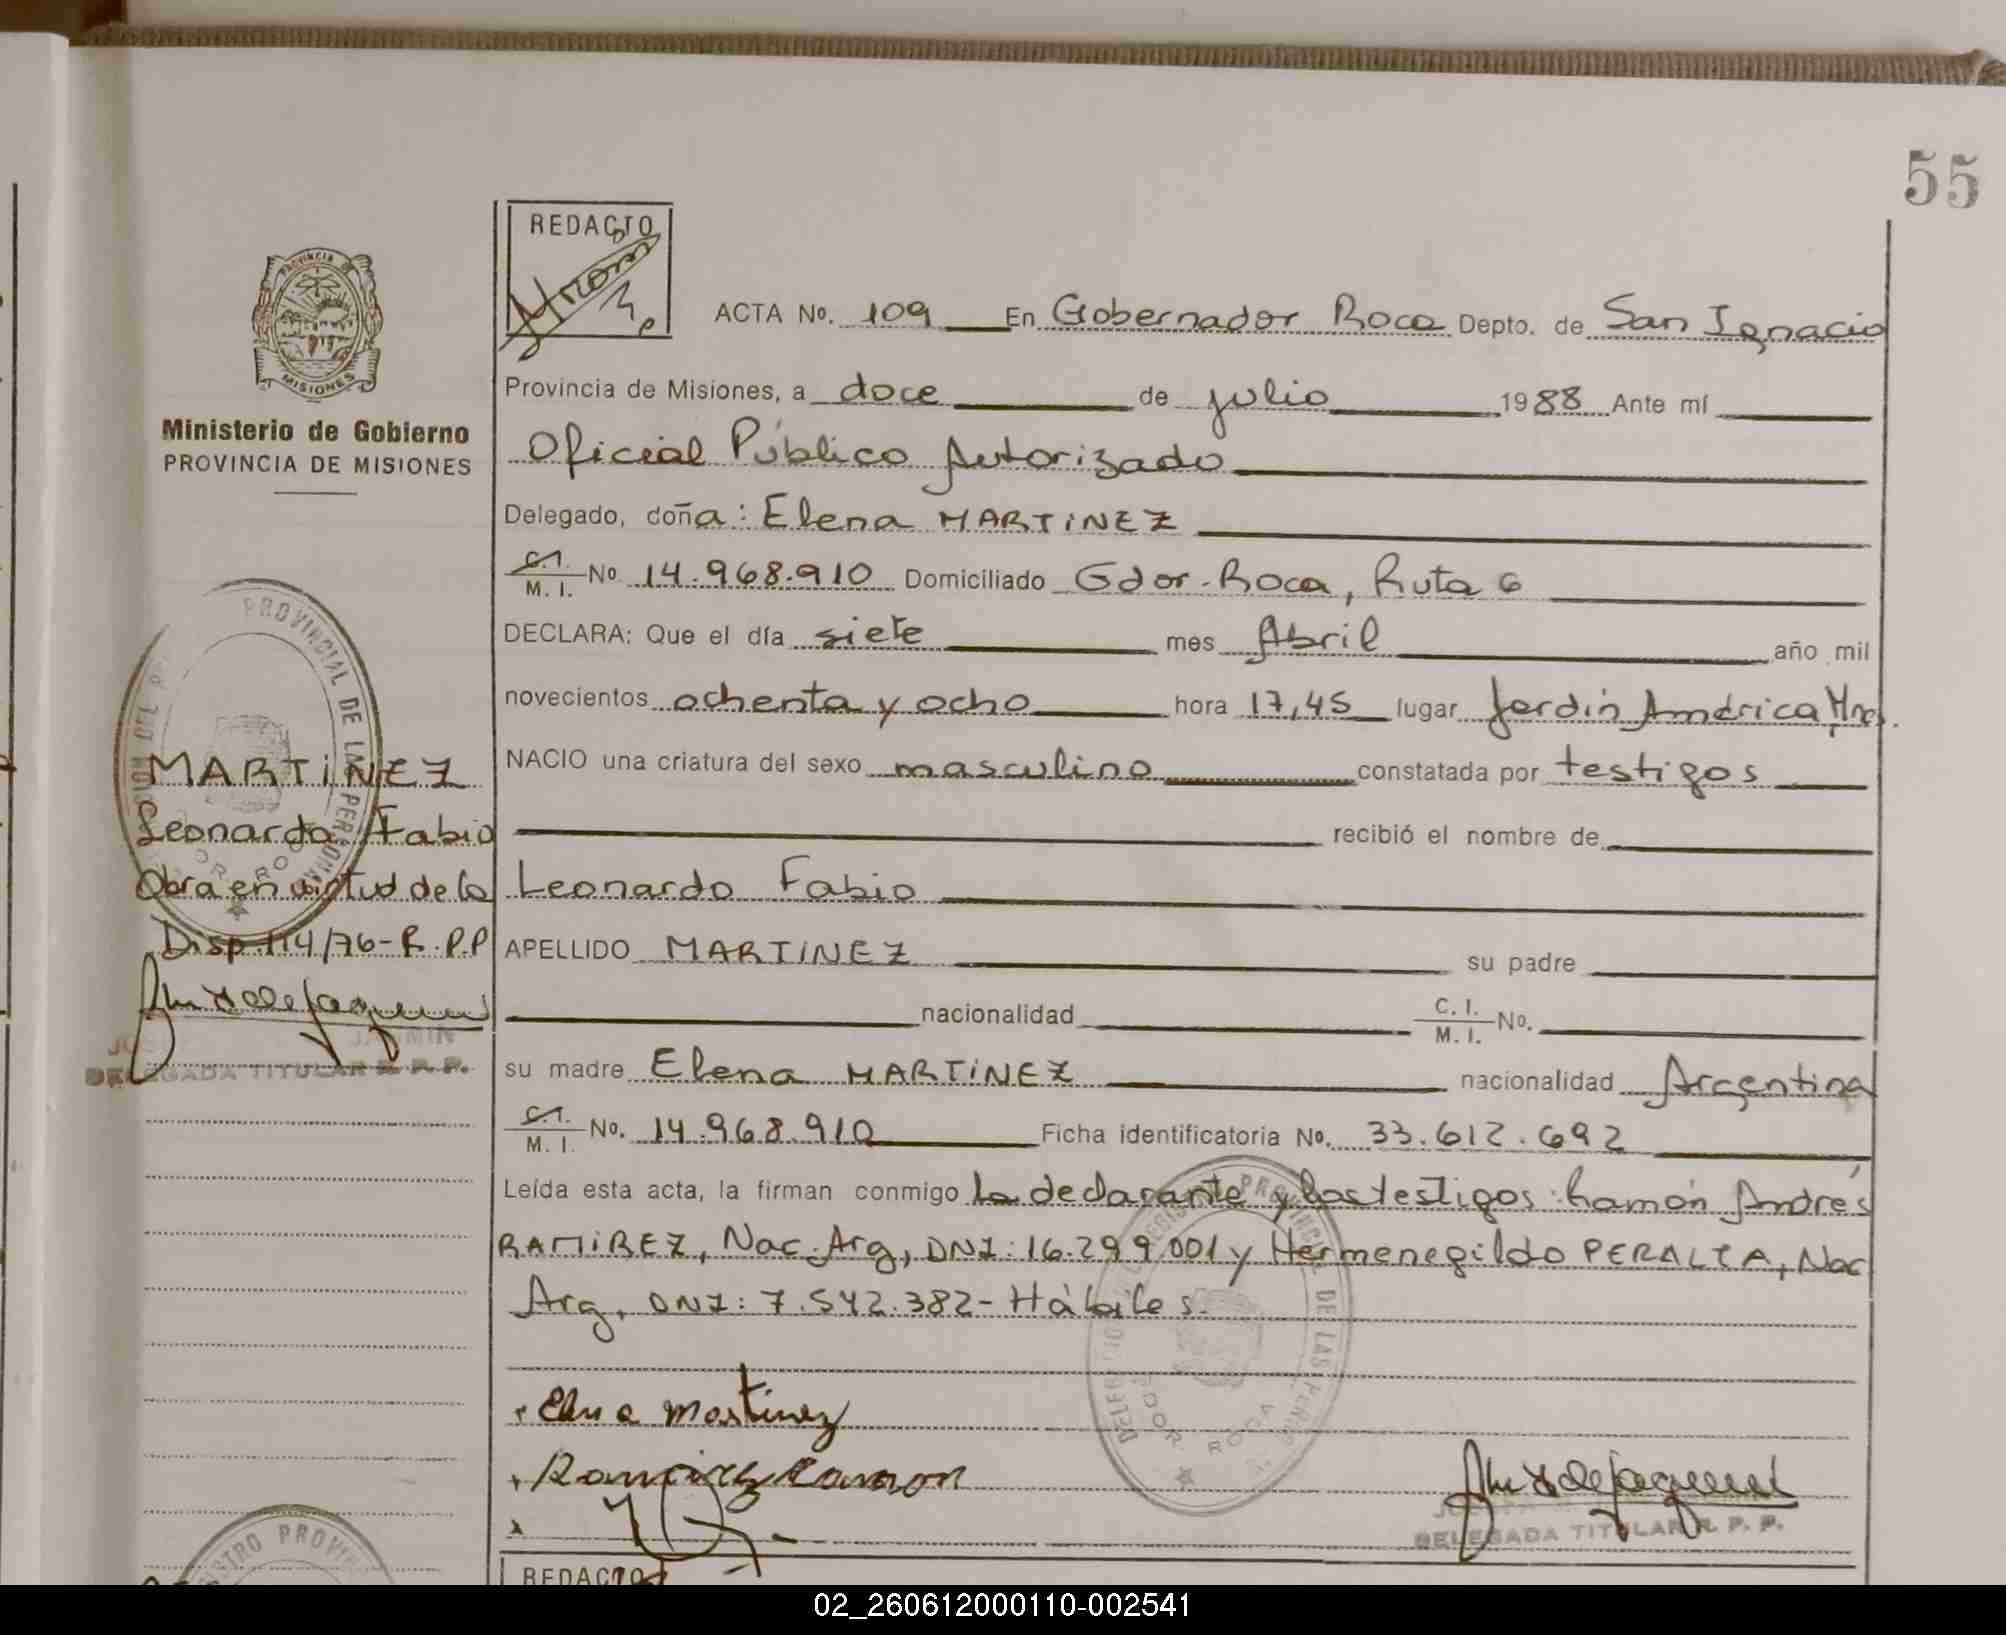 55
REDACTO
ACTA No. 109 En Gobernador Roca Depto. de San Ignacio
Provincia de Misiones, a doce de julio 1988 Ante mí
Oficial Público Autorizado
Delegado, doña: Elena MARTINEZ
C.I. M. I. No 14.968.910 Domiciliado Gdor. Roca, Ruta 6
DECLARA: Que el día siete mes Abril año mil
novecientos ochenta y ocho hora 17,45 lugar Jardín América Mnes.
NACIO una criatura del sexo masculino constatada por testigos
recibió el nombre de
Leonardo Fabio
APELLIDO MARTINEZ su padre
nacionalidad C. I. M. I. No.
su madre Elena MARTINEZ nacionalidad Argentina
C.I. M. I. No. 14.968.910 Ficha identificatoria No. 33.612.692
Leída esta acta, la firman conmigo la declarante y los testigos: Ramón Andrés
RAMIREZ, Nac. Arg, DNI: 16.299.001 y Hermenegildo PERALTA, Nac
Arg, DNI: 7.542.382- Hábiles.
Elena Martinez
Ramirez Ramon
DELEGADA TITULAR R. P. P.
PROVINCIA DE MISIONES
Ministerio de Gobierno
PROVINCIA DE MISIONES
PROVINCIAL DE LAS PERSONAS
MARTINEZ
Leonardo Fabio
Obra en virtud de la
Disp. 114/76-R.P.P
DELEGADA TITULAR R. P. P.
PROVINCIAL DE LAS
GDOR. ROCA
REDACTO
02_260612000110-002541